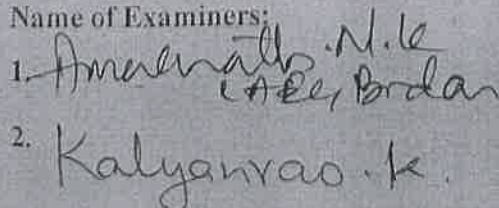 Name of Examiners:
1. Amarnath.N.K
Bidar
2. Kalyanrao.K.